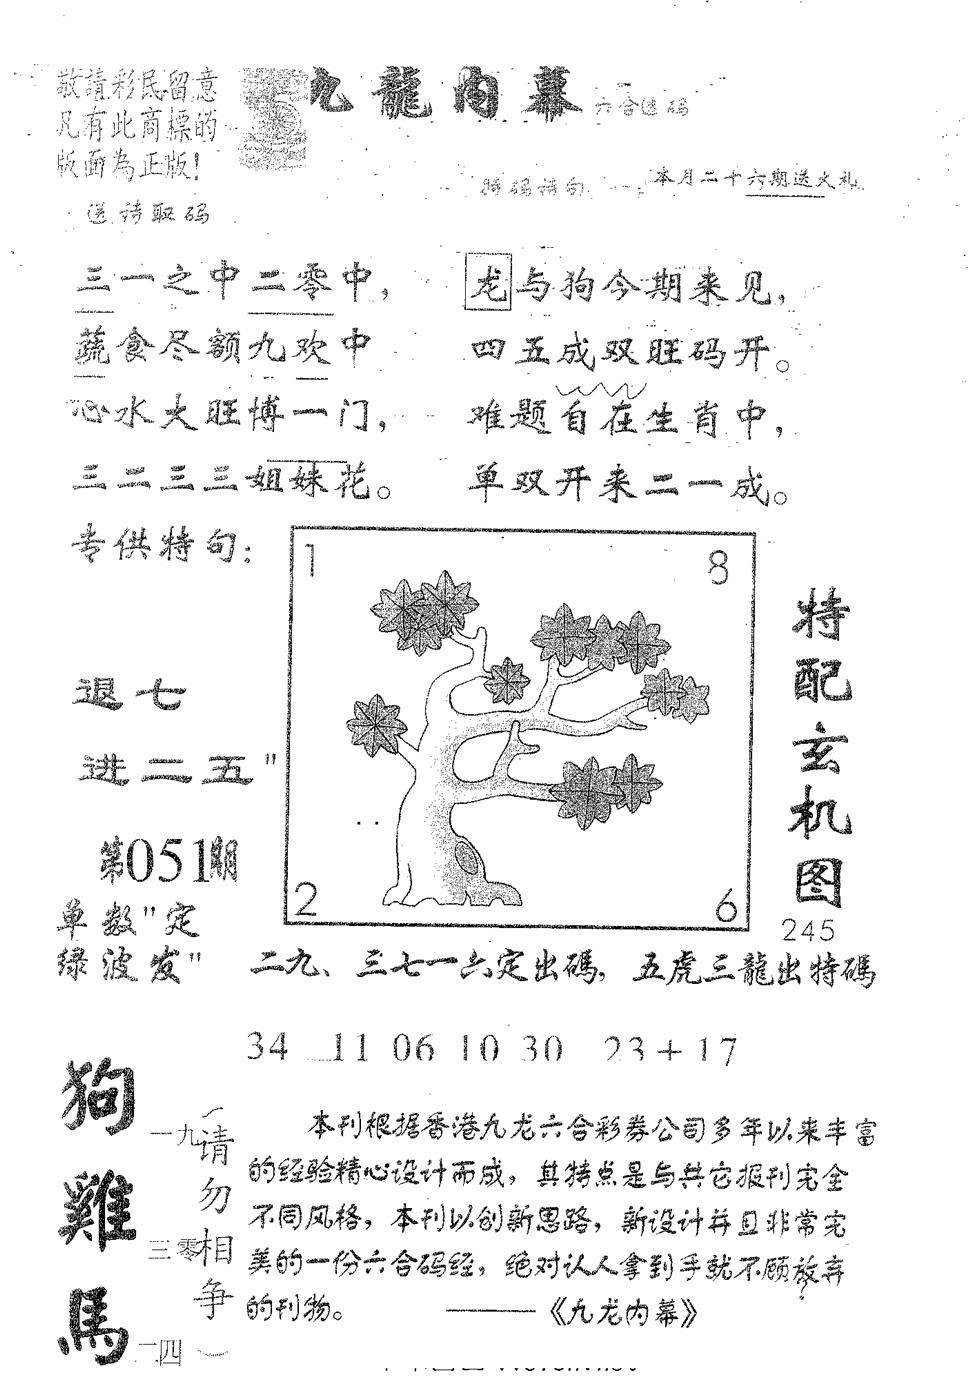 敬請彩民留意
凡有此商標的
版面為正版!
九龍内幕 六合透码
特码诗句 本月二十六期送火礼
送诗取码
三一之中二零中,
蔬食尽额九欢中
心水大旺博一门,
三二三三姐妹花。
龙与狗今期来见,
四五成双旺码开。
难题自在生肖中,
单双开来二一成。
专供特句:
退七
进二五"
第051期
单数"定
绿波发"
1
8
2
6
特配玄机图
245
二九、三七一六定出碼, 五虎三龍出特碼
34 11 06 10 30 23+17
狗 一九
雞 三零
馬 二四
(请勿相争)
本刊根据香港九龙六合彩券公司多年以来丰富
的经验精心设计而成,其特点是与其它报刊完全
不同风格,本刊以创新思路,新设计并且非常完
美的一份六合码经,绝对认人拿到手就不顾放弃
的刊物。 ——《九龙内幕》